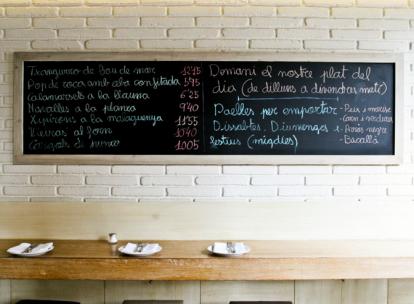 Txangurro de Bou de mar 12'45
Pop de roca amb aba confitada 5'95
Calamarsets a la llauna 6'25
Navalles a la planxa 9'40
Xipirons a la malaguenya 11'55
al forn 10'40
Cargols de 10'05
Demani el nostre plat del
dia (de dilluns a divendres matí)
Paelles per emportar - Peix i marisc
- Carn i verdures
Dissabtes, Diumenges i - Arròs negre
festius (migdies) - Bacallà